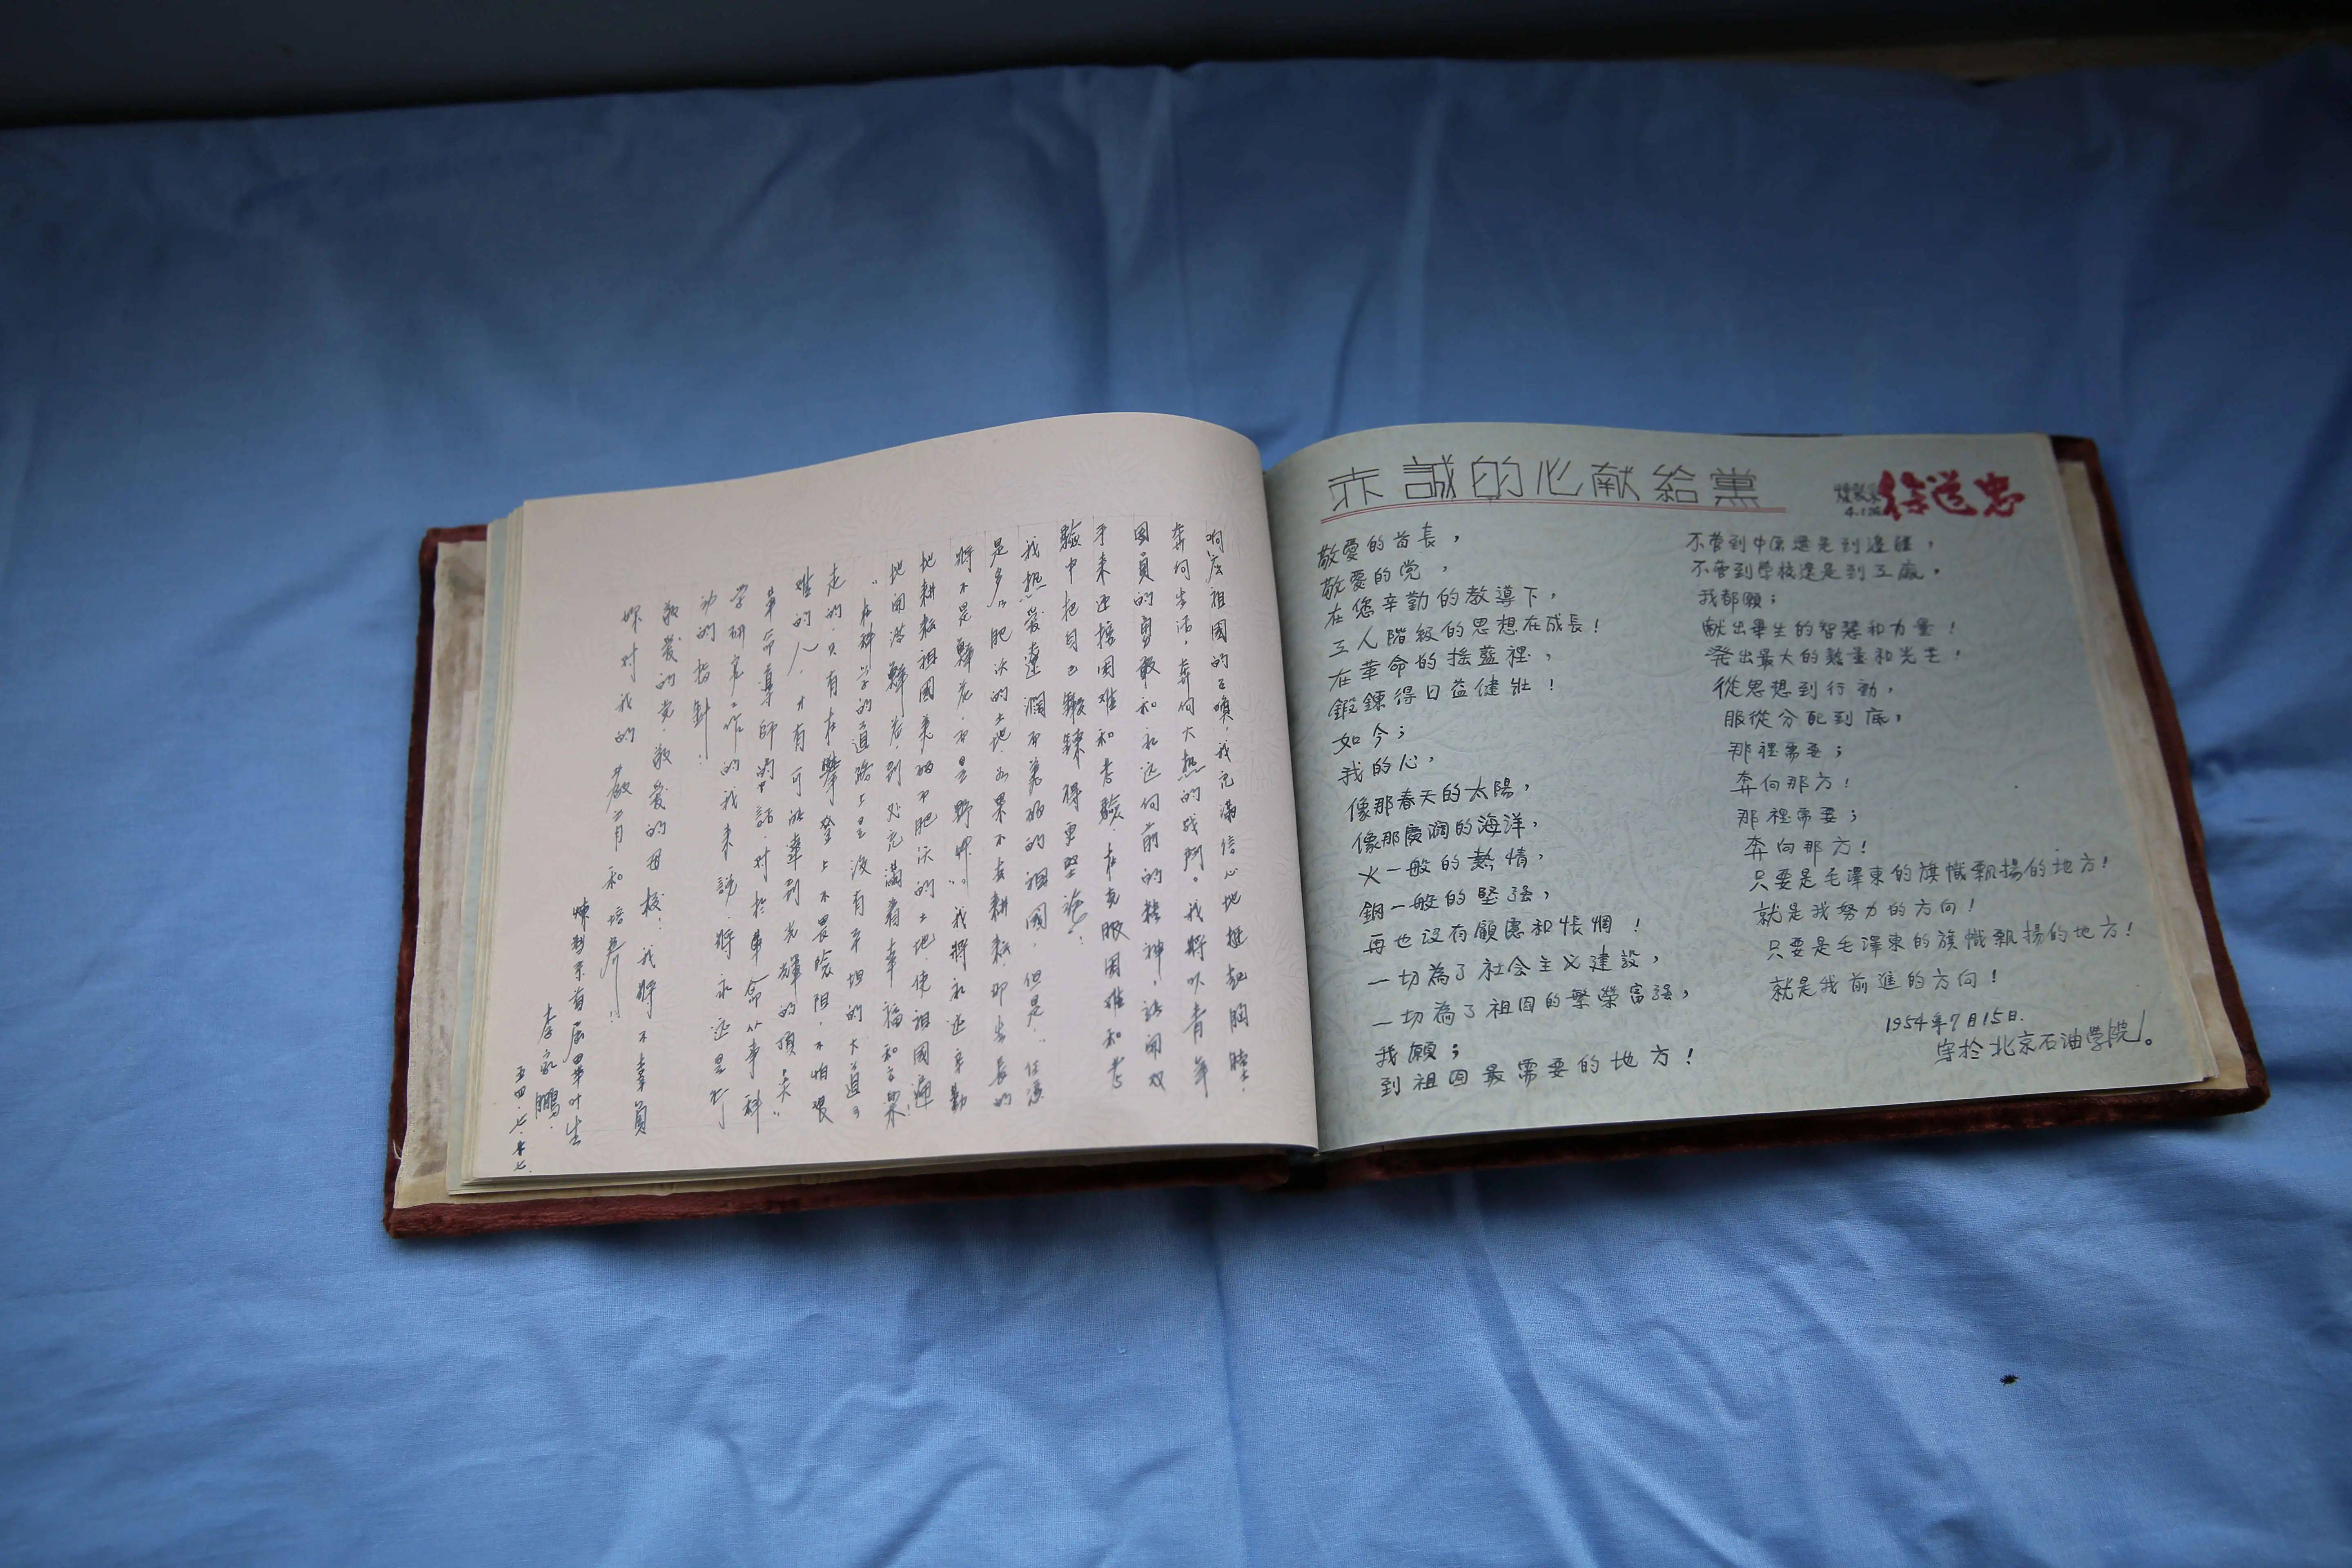 响应祖國的召喚，我充滿信心地挺起胸膛，
奔向生活，奔向火热的战鬥。我將以青年
团員的勇敢和永远向前的精神，張開双
手来迎接困难和考驗，在克服困难和考
驗中把自己鍛鍊得更堅強！
我热爱遼濶而美丽的祖國，但是，“任憑
是多么肥沃的土地，如果不去耕耘，那生長的
將不是鮮花，而是野草”。我將永远辛勤
地耕耘祖國美丽而肥沃的土地，使祖國遍
地開滂鮮花，到处充滿着幸福和言果！
“在科学的道路上是没有平坦的大道可
走的，只有在攀登上不畏險阻，不怕艰
难的人，才有可能達到光輝的頂点”
革命導師的話，对於畢命从事科
学研究工作的我来說，將永远是行
动的指針！
敬爱的党，敬爱的母校：我將不辜負
你对我的教育和培养！
煉製系首屆畢业生
李家鵬．
五四．七．十七．
赤誠的心献給黨
煉製系
徐道忠
敬愛的首長，
敬愛的党，
在您辛勤的教導下，
工人階級的思想在成長！
在革命的搖藍裡，
鍛鍊得日益健壯！
如今；
我的心，
像那春天的太陽，
像那廣濶的海洋，
火一般的熱情，
鋼一般的堅强，
再也没有顧慮和悵惘！
一切為了社会主义建設，
一切為了祖囯的繁榮富强，
我願；
到祖囯最需要的地方！
不管到中原還是到邊疆，
不管到學校還是到工廠，
我都願；
献出畢生的智慧和力量！
発出最大的熱量和光芒！
從思想到行動，
服從分配到底，
那裡需要；
奔向那方！
那裡需要；
奔向那方！
只要是毛澤東的旗幟飄揚的地方！
就是我努力的方向！
只要是毛澤東的旗幟飄揚的地方！
就是我前進的方向！
1954年7月15日．
穿於北京石油學院。